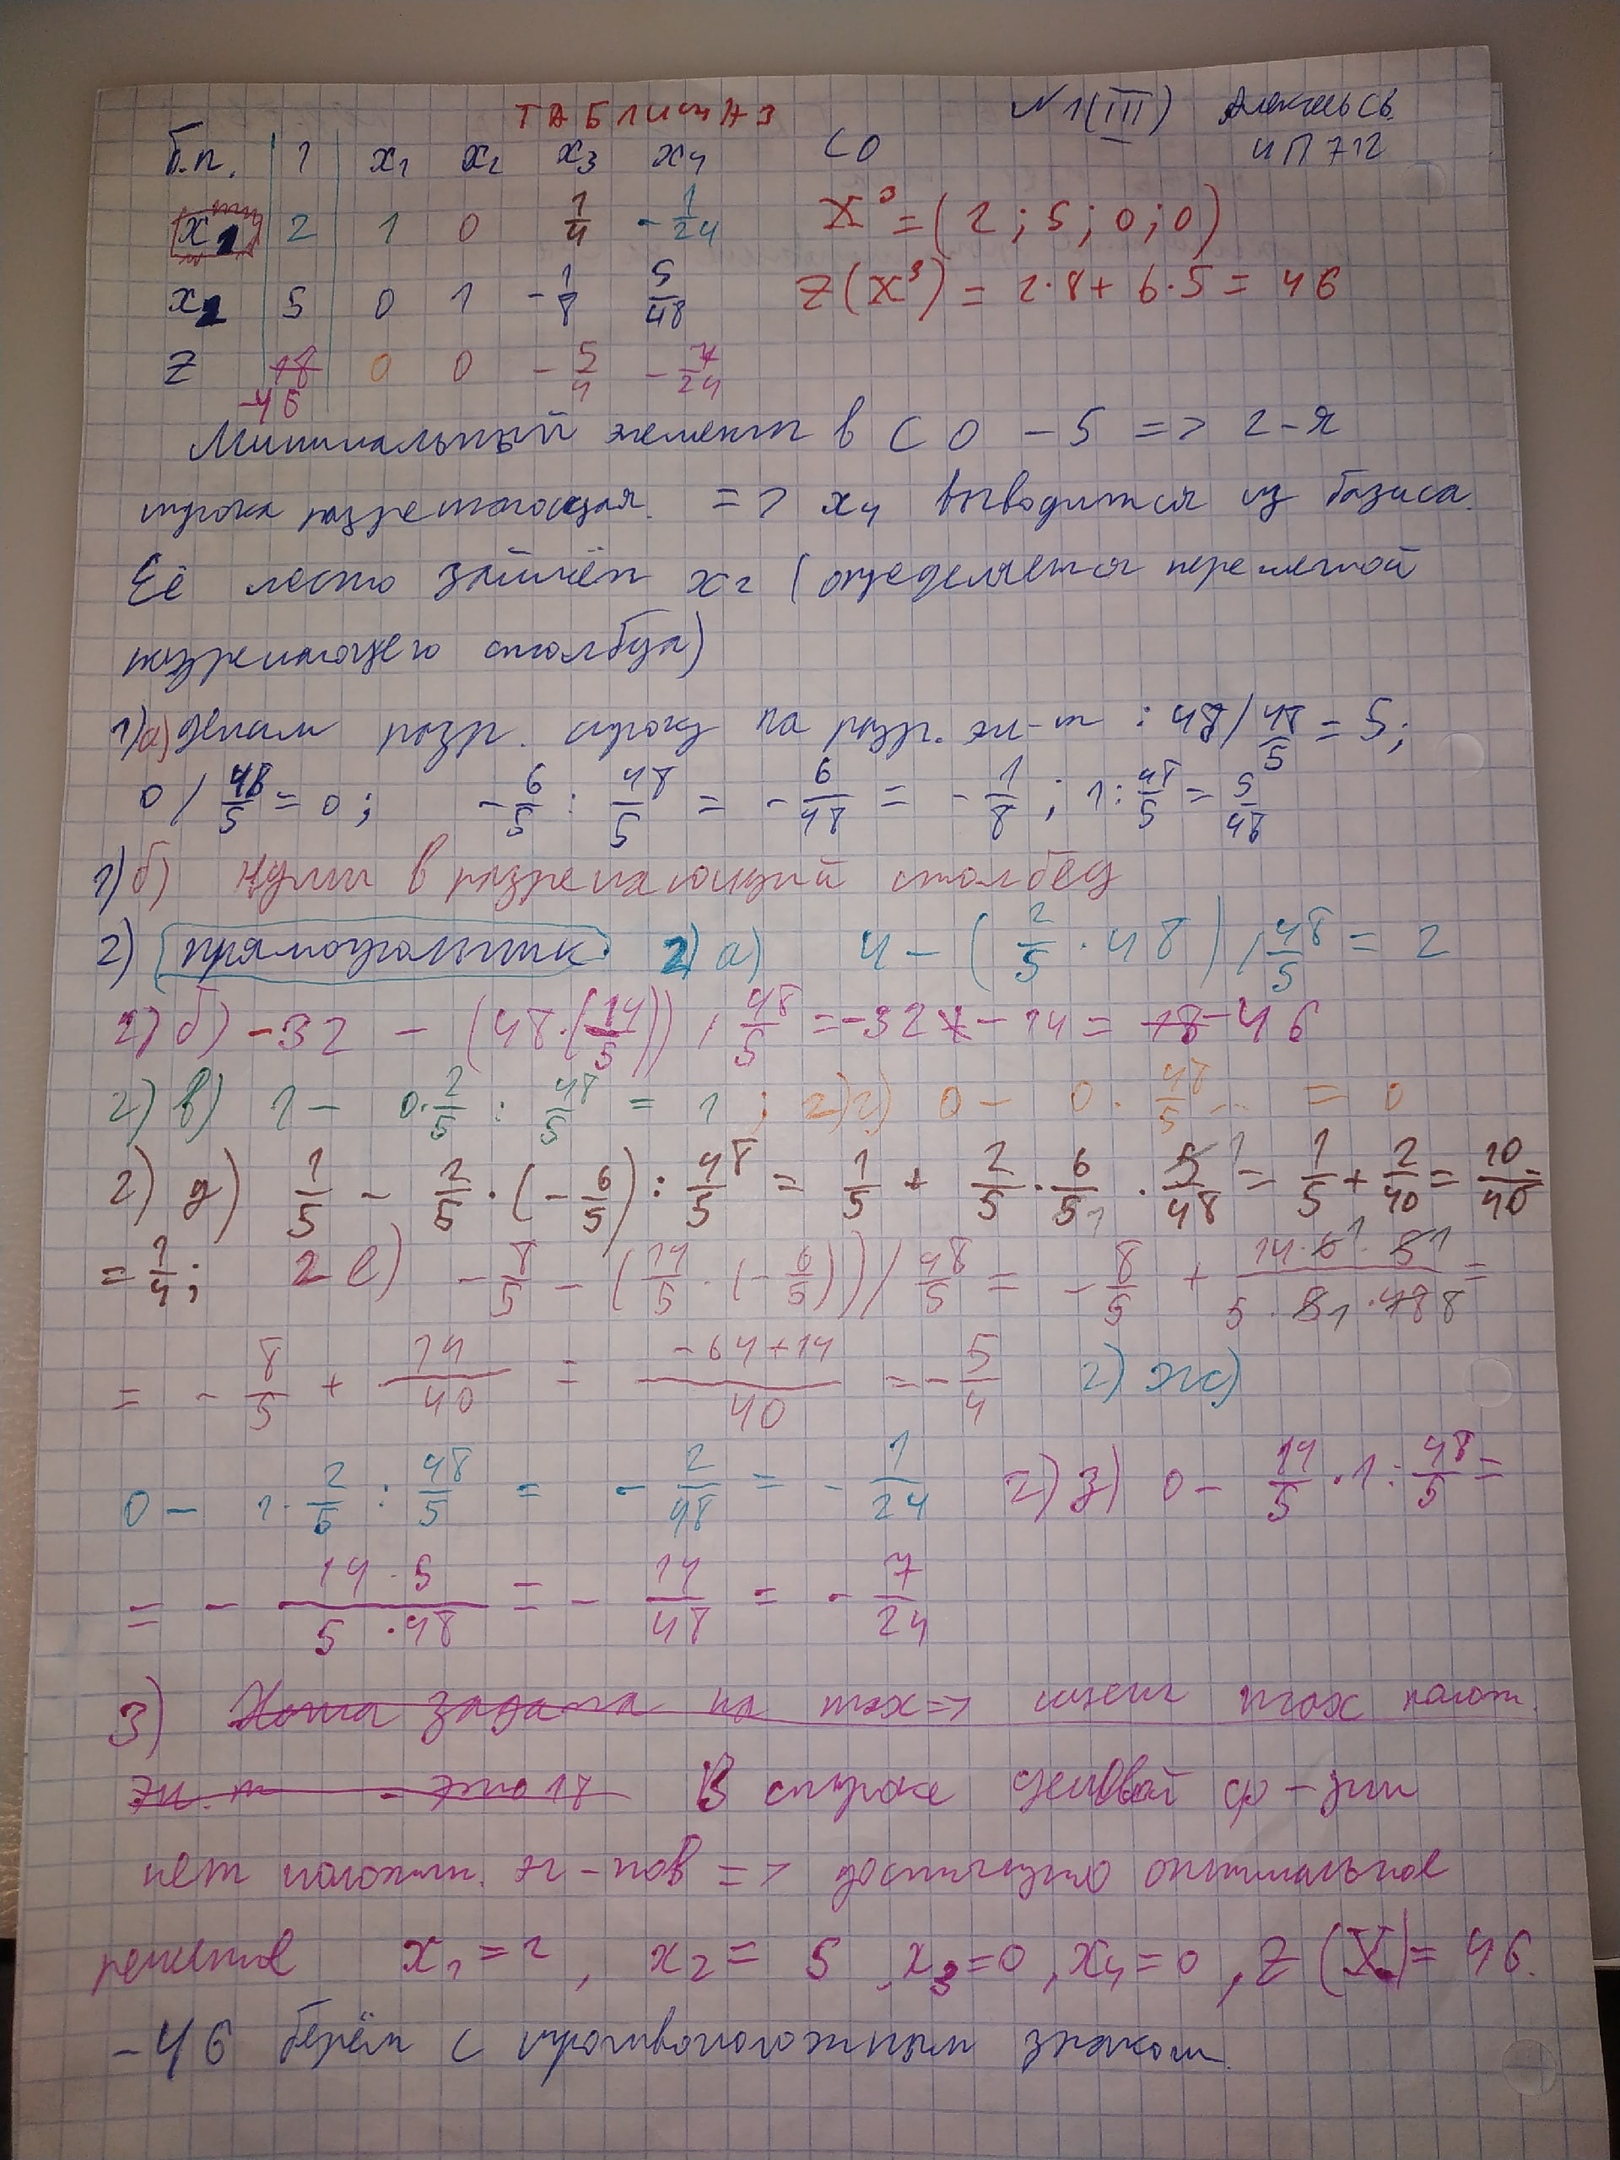 ТАБЛИЦА 3 №1(III)
б.п. 1 x₁ x₂ x₃ x₄ СО ИП 712
x₁ 2 1 0 1/4 -1/24 X³=(2;5;0;0)
x₂ 5 0 1 -1/8 5/48 Z(X³) = 2·8+6·5=46
Z 18 0 0 -5/4 -7/24
-46
Минимальный элемент в СО - 5 => 2-я
строка разрешающая. => x₄ выводится из базиса.
Её место займёт x₂ (определяется переменной
разрешающего столбца)
1)а) делим разр. строку на разр. эл-т: 48/48/5=5;
0/48/5=0; -6/5 : 48/5 = -6/48 = -1/8; 1:48/5=5/48
1)б) нули в разрешающий столбец
2) прямоугольник. 2)а) 4-(2/5·48)/48/5=2
2)б) -32 - (48·(14/5))/48/5=-32-14=18-46
2)в) 1- 0·2/5 : 48/5 = 1; 2)г) 0- 0·48/5... = 0
2)д) 1/5 - 2/5·(-6/5):48/5 = 1/5 + 2/5·6/5·5/48=1/5+2/40=10/40=
=1/4; 2 е) -8/5-(14/5·(-6/5))/48/5 = -8/5 + 14·6·5/5·5·48=
= -8/5 + 14/40 = -64+14/40 =-5/4 2) ж)
0- 1·2/5 : 48/5 = -2/48 = -1/24 2)з) 0-14/5·1:48/5=
= - 14·5/5·48 = -14/48 = -7/24
3) Наша задача на max=> ищем max полож.
эл. т - это 18 В строке целевой ф-ции
нет положит. эл-тов => достигнуто оптимальное
решение x₁=2, x₂=5, x₃=0, x₄=0, Z(X)=46.
-46 берём с противоположным знаком.